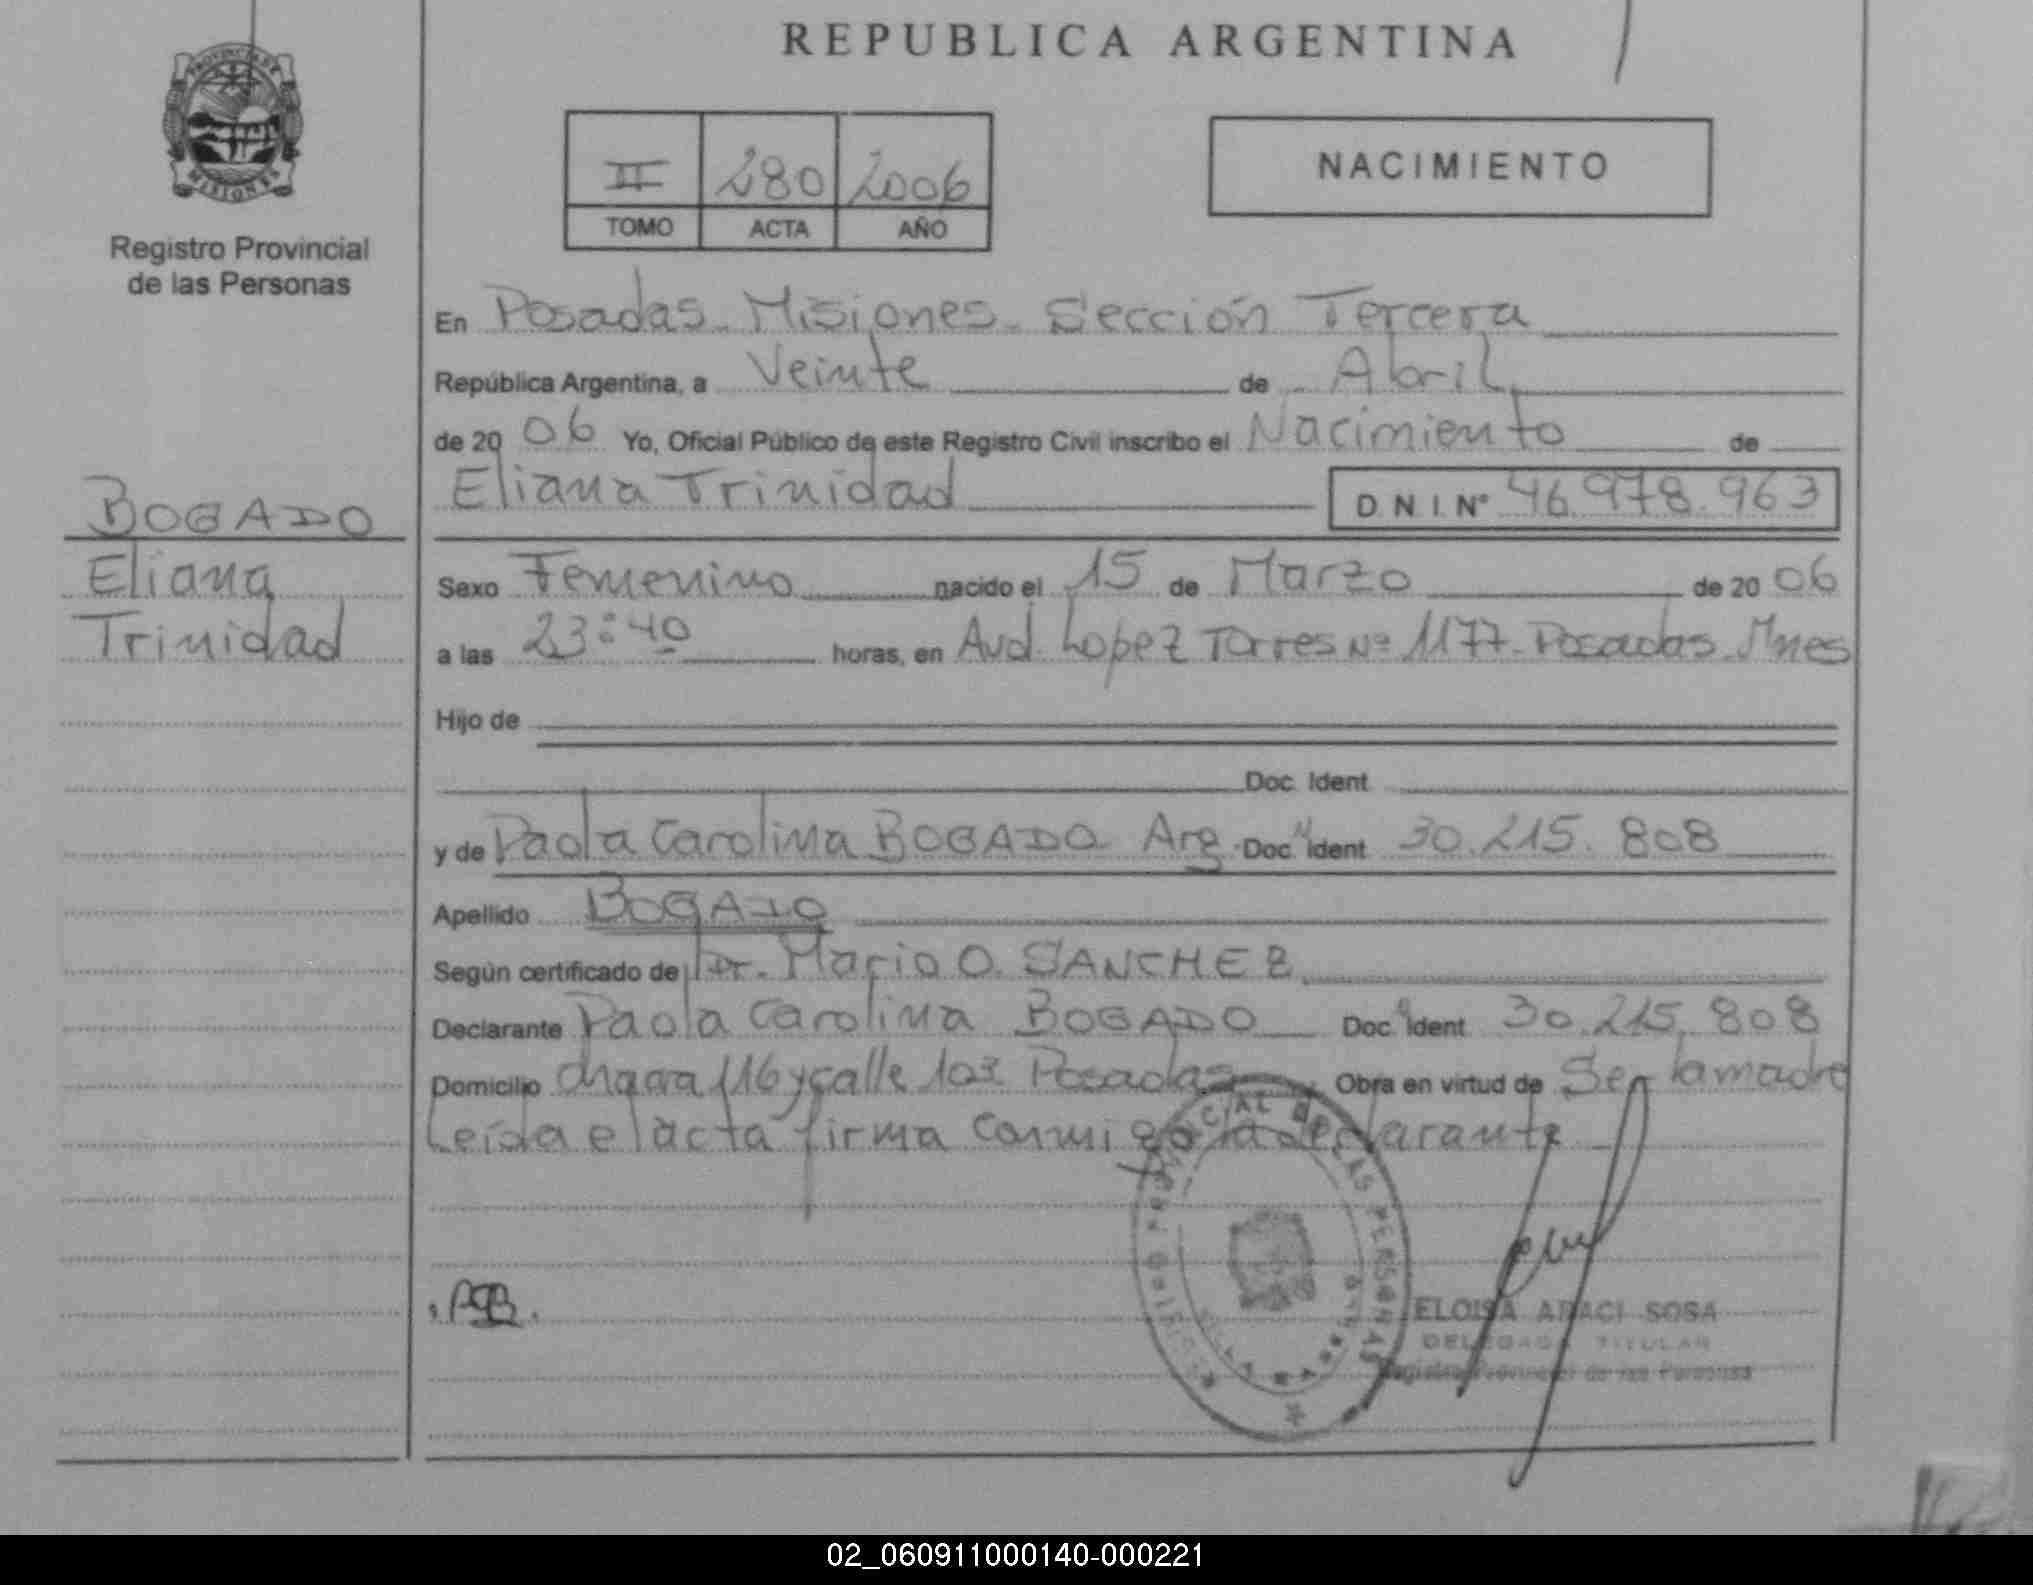 REPUBLICA ARGENTINA
PROVINCIA DE
MISIONES
Registro Provincial
de las Personas
II 280 2006
TOMO ACTA AÑO
NACIMIENTO
En Posadas Misiones Sección Tercera
República Argentina, a Veinte de Abril
de 2006 Yo, Oficial Público de este Registro Civil inscribo el Nacimiento de
Eliana Trinidad D N I. N° 46.978.963
BOGADO
Eliana
Trinidad
Sexo Femenino nacido el 15 de Marzo de 2006
a las 23:40 horas, en Avd. Lopez Torres Nº 1177 Posadas Mnes
Hijo de
Doc. Ident
y de Paola Carolina BOGADO Arg. Doc. Ident 30.215.808
Apellido BOGADO
Según certificado de Dr. Mario O. SANCHEZ
Declarante Paola Carolina BOGADO Doc. Ident 30.215.808
Domicilio chacra 116 y calle 103 Posadas Obra en virtud de Ser la madre
Leída el acta firma conmigo la declarante
ELOISA ARACI SOSA
DELEGADA TITULAR
Registro Provincial de las Personas
02_060911000140-000221